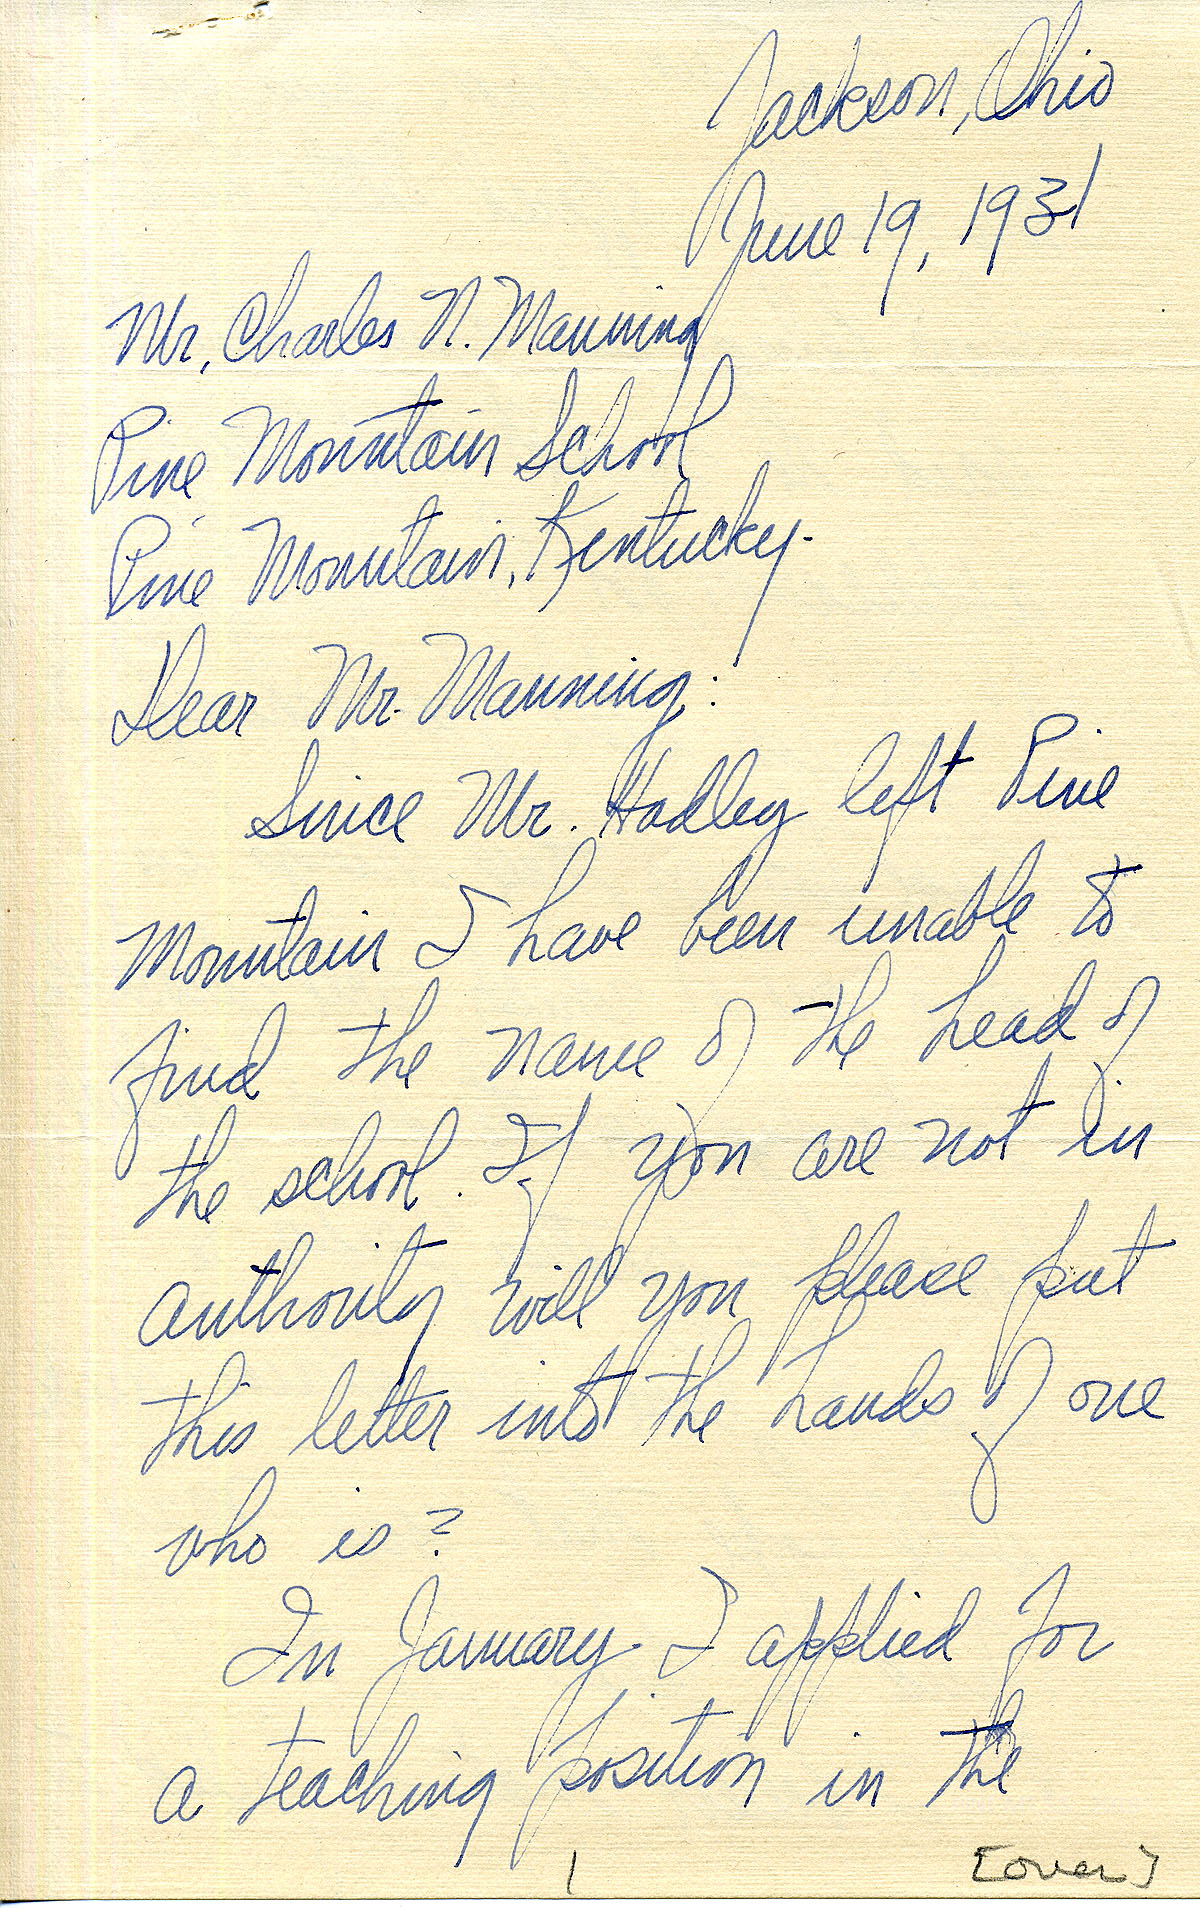 Jackson, Ohio
June 19, 1931
Mr. Charles N. Manning
Pine Mountain School
Pine Mountain, Kentucky.
Dear Mr. Manning:
Since Mr. Hadley left Pine
Mountain I have been unable to
find the name of the head of
the school. If you are not in
authority will you please put
this letter into the hands of one
who is?
In January I applied for
a teaching position in the
1
[over]